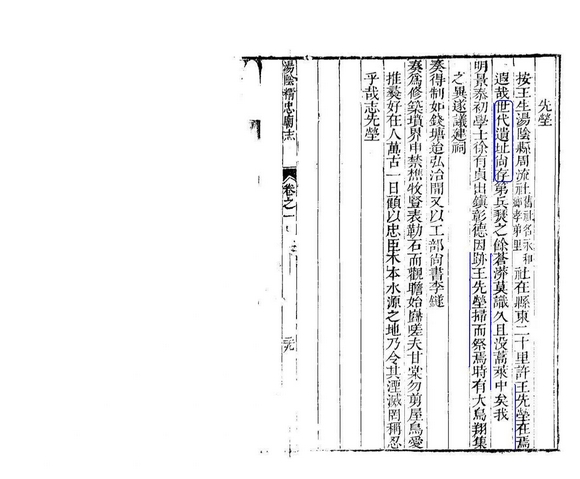 先塋
按王生湯陰縣周流社舊社名永和鄉孝弟里社在縣東二十里許王先塋在焉
遐哉世代遺址尚存第兵燹之餘蒼漭莫識久且没蒿萊中矣我
明景泰初學士徐有貞出鎮彰德因跡王先塋掃而祭焉時有大鳥翔集
之異遂議建祠
奏得制如錢塘迨弘治間又以工部尚書李鐩
奏爲修築墳界申禁樵牧豎表勒石而觀瞻始嗟夫甘棠勿剪屋烏愛
推蓺好在人萬古一日顧以忠臣木本水源之地乃令其湮滅罔稱忍
乎哉志先塋
湯陰精忠廟志
卷之一
二九